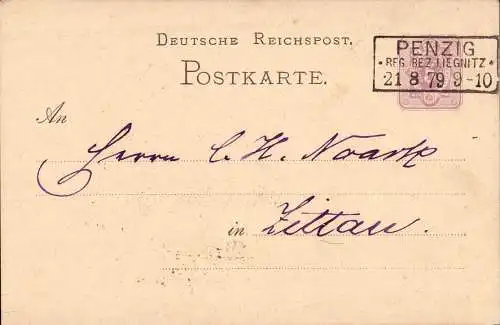 DEUTSCHE REICHSPOST.
POSTKARTE.
PENZIG
* REG. BEZ. LIEGNITZ *
21 8 79 9-10
An
Herrn C. H. Noack
in Zittau.